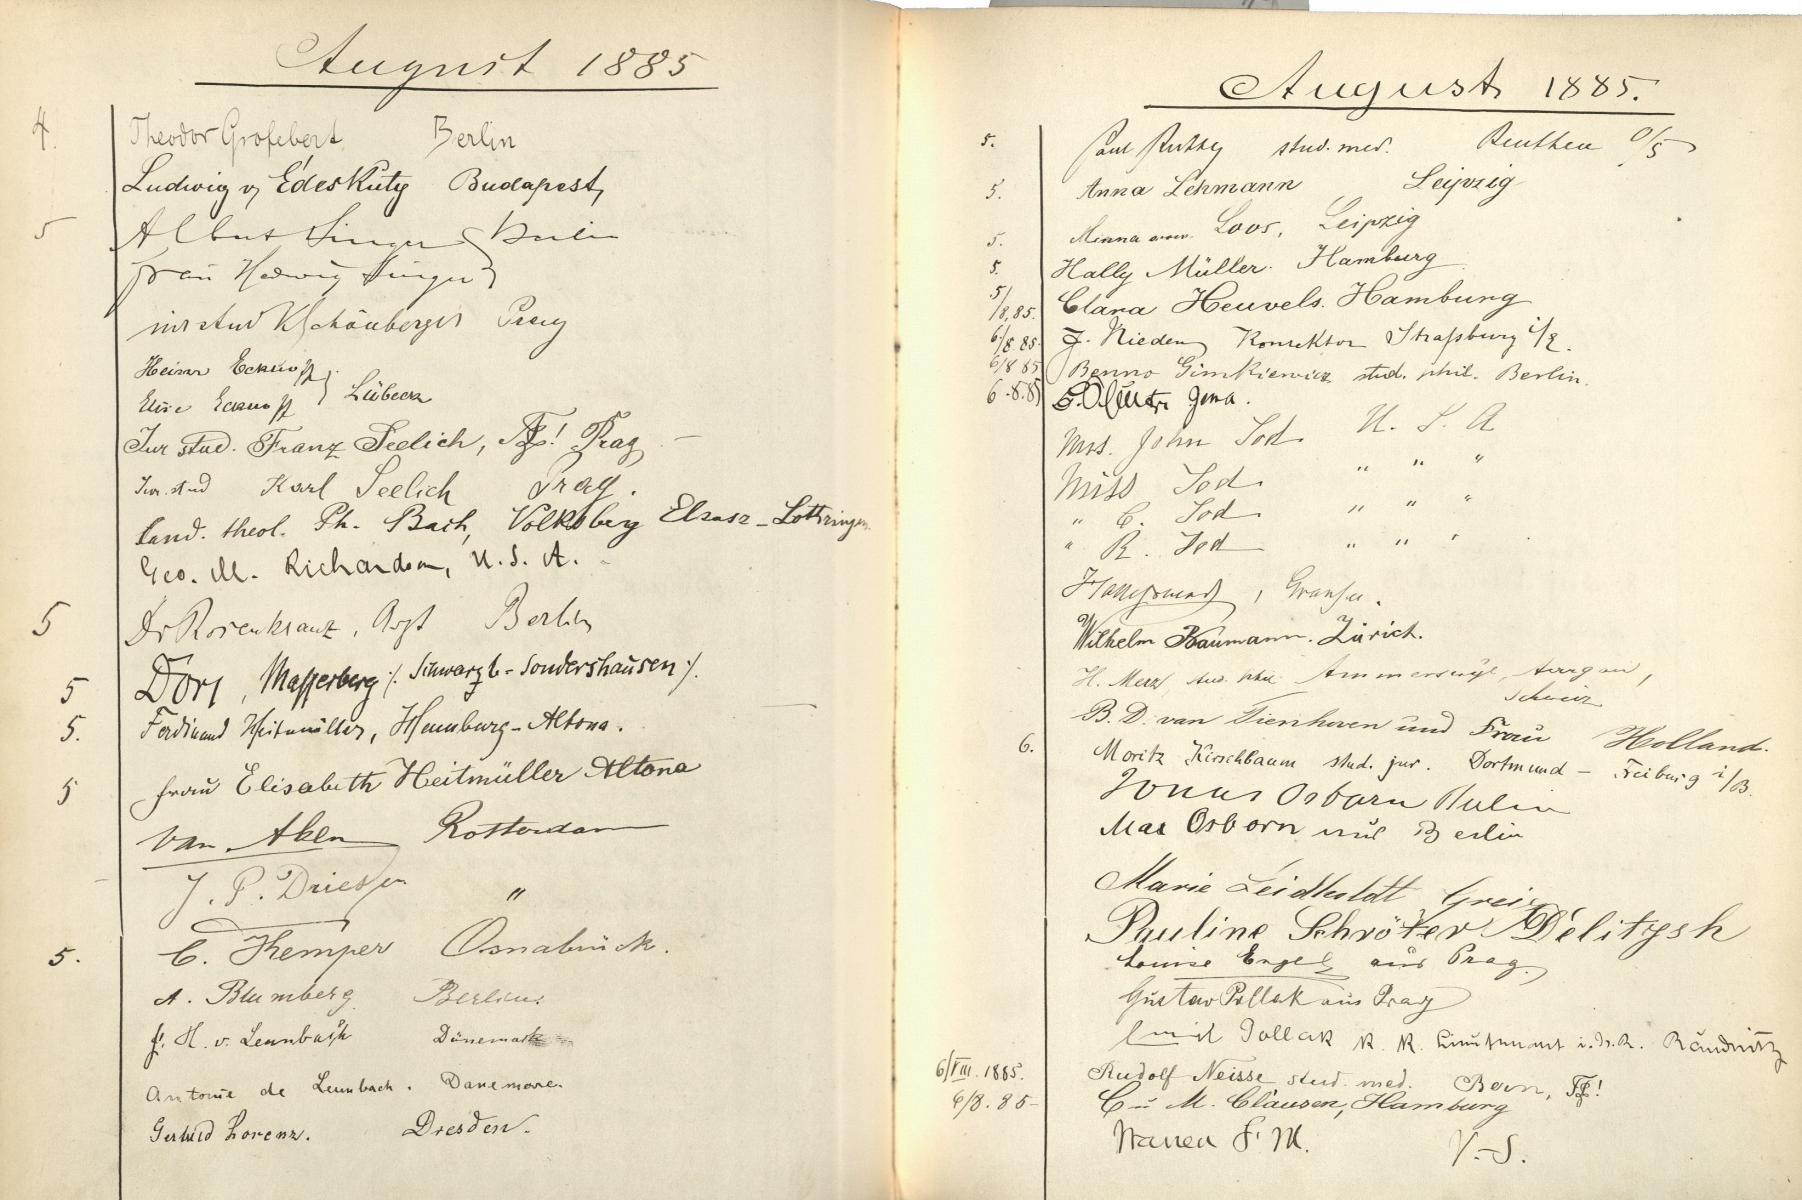 August 1885
4. Theodor Grofebert Berlin
Ludwig v. Édeskúty Budapest,
5 Albert Singer Berlin
Frau Hedwig Singer
jur stud Schönberger Prag
Heinr Eckhoff
Elise Eckhoff Lübeck
Jur stud. Franz Seelich, Prag
Jur. stud Karl Seelich Prag.
Cand. theol. Ph. Bach, Volksberg Elsass-Lothringen
Geo. M. Richardson, U.S.A.
5 Dr Rosenkranz, Arzt Berlin
5 Masserberg /. Schwarzb-Sondershausen ./.
5. Ferdinand Heitmüller, Hamburg-Altona.
5 Frau Elisabeth Heitmüller Altona
van Aken Rotterdam
J. P. Driessen "
5. C. Kemper Osnabrück.
A. Blumberg Berlin.
H. v. Dänemark
Antonie de Danemare.
Gertrud Lorenz. Dresden.
August 1885.
5. Paul stud. med. Beuthen O/S
5. Anna Lehmann Leipzig
5. Minna Loos, Leipzig
5. Hally Müller. Hamburg
5/8.85. Clara Heuvels. Hamburg
6/8 85. J. Nieden Konrektor Straßburg i/E.
6/8 85 Benno Gimkiewicz stud. phil. Berlin.
6.8.85 Jena.
Mrs. John Tod. U. S. A
Miss Tod. " " "
" C. Tod " " "
" R. Tod " " "
Gransee.
Wilhelm Baumann. Zürich.
H. Merz, stud. phil. Ammerswyl, Aargau,
Schweiz
B. D. van Tienhoven und Frau Holland.
6. Moritz Kirschbaum stud. jur. Dortmund - Freiburg i/B.
Jonas Osborn Berlin
Max Osborn aus Berlin
Marie Leidholdt Greiz
Pauline Schröter Délitzsh
Louise Engel aus Prag.
Gustav Pollak aus Prag
Emil Pollak K. K. Lieutenant i. d. R. Raudnitz
6/VIII. 1885. Rudolf Neisse stud. med. Bonn,
6/8.85- C u M. Clausen, Hamburg
Warren F. M. V.-S.